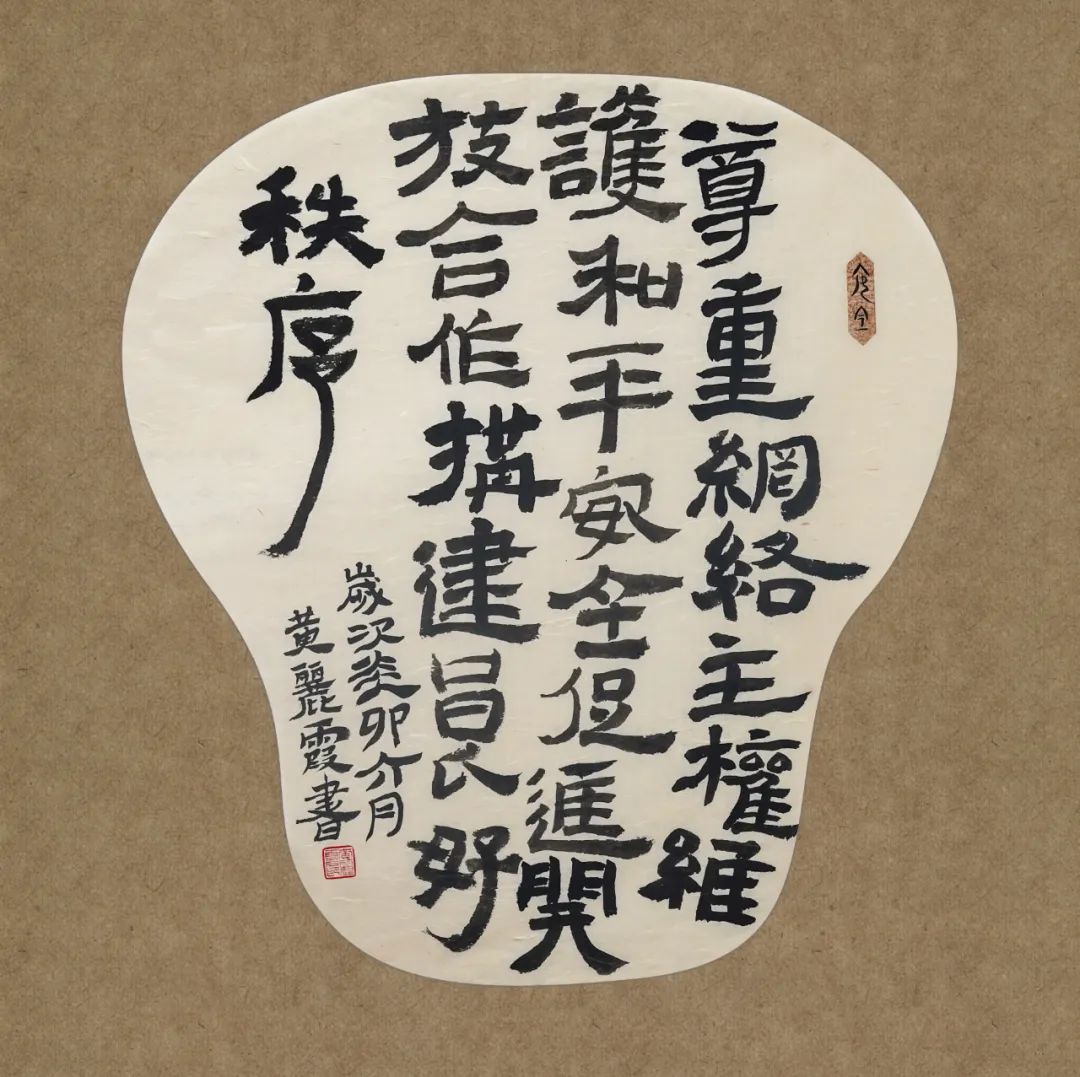 尊重網絡主權維
護和平安全促進開
放合作搆建良好
秩序
歲次癸卯六月
黃麗霞書